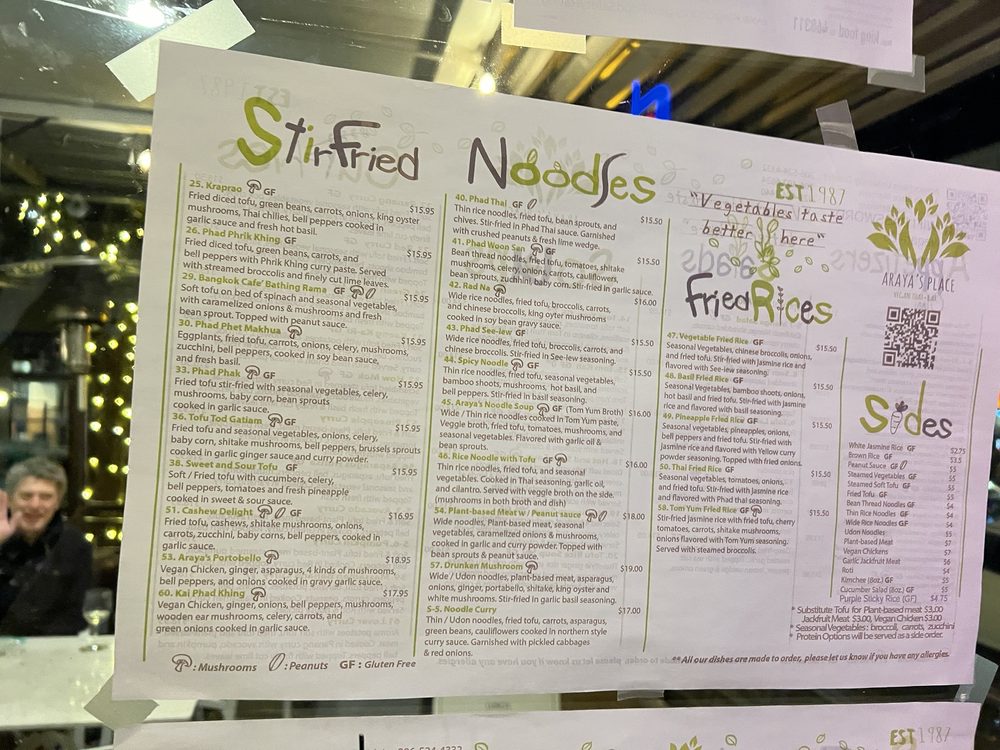 Stir Fried
25. Kraprao GF
Fried diced tofu, green beans, carrots, onions, king oyster $15.95
mushrooms, Thai chilies, bell peppers cooked in
garlic sauce and fresh hot basil.
26. Phad Phrik Khing GF
Fried diced tofu, green beans, carrots, and $15.95
bell peppers with Phrik Khing curry paste. Served
with streamed broccolis and finely cut lime leaves.
29. Bangkok Cafe' Bathing Rama GF
Soft tofu on bed of spinach and seasonal vegetables, $15.95
with caramelized onions & mushrooms and fresh
bean sprout. Topped with peanut sauce.
30. Phad Phet Makhua
Eggplants, fried tofu, carrots, onions, celery, mushrooms, $15.95
zucchini, bell peppers, cooked in soy bean sauce,
and fresh basil.
33. Phad Phak GF
Fried tofu stir-fried with seasonal vegetables, celery, $15.95
mushrooms, baby corn, bean sprouts
cooked in garlic sauce.
36. Tofu Tod Gatiam GF
Fried tofu and seasonal vegetables, onions, celery, $15.95
baby corn, shitake mushrooms, bell peppers, brussels sprouts
cooked in garlic ginger sauce and curry powder.
38. Sweet and Sour Tofu GF
Soft / Fried tofu with cucumbers, celery, $15.95
bell peppers, tomatoes and fresh pineapple
cooked in sweet & sour sauce.
51. Cashew Delight GF
Fried tofu, cashews, shitake mushrooms, onions, $16.95
carrots, zucchini, baby corn, bell peppers, cooked in
garlic sauce.
53. Araya's Portobello
Vegan Chicken, ginger, asparagus, 4 kinds of mushrooms, $18.95
bell peppers, and onions cooked in gravy garlic sauce.
60. Kai Phad Khing
Vegan Chicken, ginger, onions, bell peppers, mushrooms, $17.95
wooden ear mushrooms, celery, carrots, and
green onions cooked in garlic sauce.
: Mushrooms : Peanuts GF : Gluten Free
Noodles
40. Phad Thai GF
Thin rice noodles, fried tofu, bean sprouts, and $15.50
chives. Stir-fried in Phad Thai sauce. Garnished
with crushed peanuts & fresh lime wedge.
41. Phad Woon Sen GF
Bean thread noodles, fried tofu, tomatoes, shitake $15.50
mushrooms, celery, onions, carrots, cauliflowers
bean sprouts, zucchini, baby corn. Stir-fried in garlic sauce.
42. Rad Na
Wide rice noodles, fried tofu, broccolis, carrots, $16.00
and chinese broccolis, king oyter mushrooms
cooked in soy bean gravy sauce.
43. Phad See-lew GF
Wide rice noodles, fried tofu, broccolis, carrots, and $15.50
chinese broccolis. Stir-fried in See-lew seasoning.
44. Spicy Noodle GF
Thin rice noodles, fried tofu, seasonal vegetables, $15.50
bamboo shoots, mushrooms, hot basil, and
bell peppers. Stir-fried in basil seasoning.
45. Araya's Noodle Soup GF (Tom Yum Broth) $16.00
Wide / Thin rice noodles cooked in Tom Yum paste,
Veggie broth, fried tofu, tomatoes, mushrooms, and
seasonal vegetables. Flavored with garlic oil &
bean sprouts.
46. Rice Noodle with Tofu GF
Thin rice noodles, fried tofu, and seasonal $16.00
vegetables. Cooked in Thai seasoning, garlic oil,
and cilantro. Served with veggie broth on the side.
(mushrooms in both broth and dish)
54. Plant-based Meat w / Peanut sauce
Wide noodles, plant-based meat, seasonal $18.00
vegetables, caramelized onions & mushrooms,
cooked in garlic and curry powder. Topped with
bean sprouts & peanut sauce.
57. Drunken Mushroom
Wide / Udon noodles, plant-based meat, asparagus, $19.00
onions, ginger, portabello, shitake, king oyster and
white mushrooms. Stir-fried in garlic basil seasoning.
S-5. Noodle Curry
Thin / Udon noodles, fried tofu, carrots, asparagus, $17.00
green beans, cauliflowers cooked in northern style
curry sauce. Garnished with pickled cabbages
& red onions.
EST 1987
"Vegetables taste
better here"
Fried Rices
47. Vegetable Fried Rice GF
Seasonal Vegetables, chinese broccolis, onions, $15.50
and fried tofu. Stir-fried with Jasmine rice and
flavored with See-lew seasoning.
48. Basil Fried Rice GF
Seasonal Vegetables, bamboo shoots, onions, $15.50
hot basil and fried tofu. Stir-fried with Jasmine
rice and flavored with basil seasoning.
49. Pineapple Fried Rice GF
Seasonal vegetables, pineapples, onions, $15.50
bell peppers and fried tofu. Stir-fried with
jasmine rice and flavored with Yellow curry
powder seasoning. Topped with fried onions.
50. Thai Fried Rice GF
Seasonal vegetables, tomatoes, onions, $15.50
and fried tofu. Stir-fried with Jasmine rice
and flavored with Phad thai seasoning.
58. Tom Yum Fried Rice GF
Stir-fried Jasmine rice with fried tofu, cherry $15.50
tomatoes, carrots, shitake mushrooms,
onions flavored with Tom Yum seasoning.
Served with steamed broccolis.
ARAYA'S PLACE
Sides
White Jasmine Rice GF $2.75
Brown Rice GF $3.5
Peanut Sauce GF $5
Steamed Vegetables GF $5
Steamed Soft Tofu GF $5
Fried Tofu GF $5
Bean Thread Noodles GF $4
Thin Rice Noodles GF $4
Wide Rice Noodles GF $4
Udon Noodles $5
Plant-based Meat $7
Vegan Chickens $7
Garlic Jackfruit Meat $6
Roti $4
Kimchee (8oz.) GF $5
Cucumber Salad (8oz.) GF $5
Purple Sticky Rice (GF) $4.75
* Substitute Tofu for Plant-based meat $3.00
Jackfruit Meat $3.00, Vegan Chicken $3.00
* Seasonal Vegetables : broccoli, carrots, zucchini
* Protein Options will be served as a side order.
** All our dishes are made to order, please let us know if you have any allergies.
EST 1987